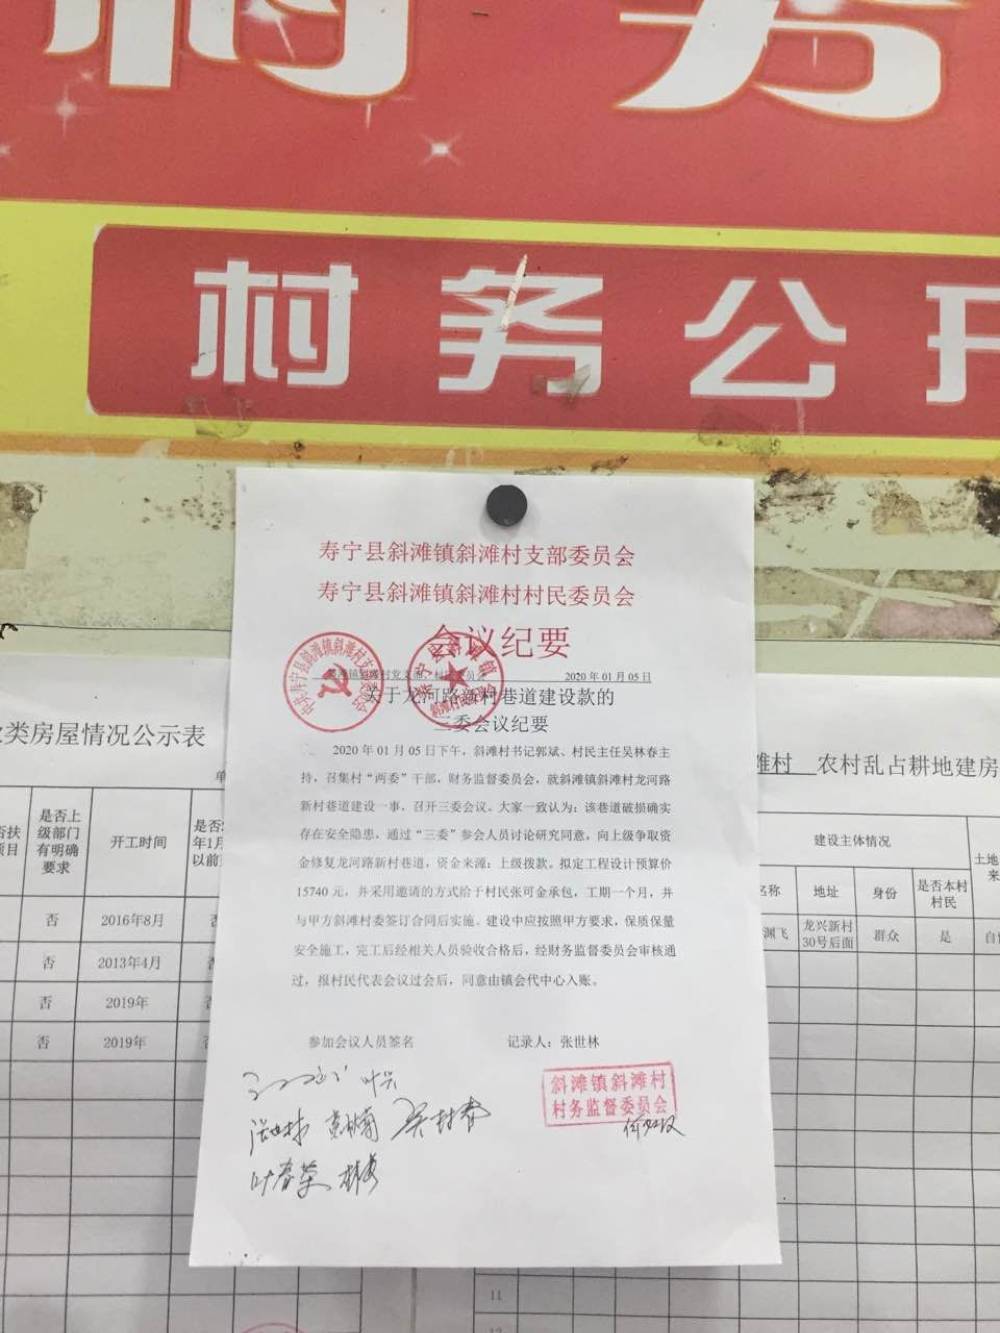 村务
村务公开
寿宁县斜滩镇斜滩村支部委员会
寿宁县斜滩镇斜滩村村民委员会
会议纪要
斜滩镇斜滩村党支部、村民委员会 2020年01月05日
关于龙河路新村巷道建设款的
三委会议纪要
2020年01月05日下午，斜滩村书记郭斌、村民主任吴林春主
持，召集村“两委”干部，财务监督委员会，就斜滩镇斜滩村龙河路
新村巷道建设一事，召开三委会议。大家一致认为：该巷道破损确实
存在安全隐患，通过“三委”参会人员讨论研究同意，向上级争取资
金修复龙河路新村巷道，资金来源：上级拨款。拟定工程设计预算价
15740元，并采用邀请的方式给于村民张可金承包，工期一个月，并
与甲方斜滩村委签订合同后实施。建设中应按照甲方要求，保质保量
安全施工，完工后经相关人员验收合格后，经财务监督委员会审核通
过，报村民代表会议过会后，同意由镇会代中心入账。
参加会议人员签名 记录人：张世林
斜滩镇斜滩村
村务监督委员会
张世林 吴林春
叶春荣
类房屋情况公示表
单
是否上
级部门
有明确
要求
开工时间
否 2016年8月
否 2013年4月
否 2019年
否 2019年
滩村 农村乱占耕地建房
建设主体情况
土地
来
名称 地址 身份 是否本村
村民
渊飞 龙兴新村
30号后面 群众 是
11